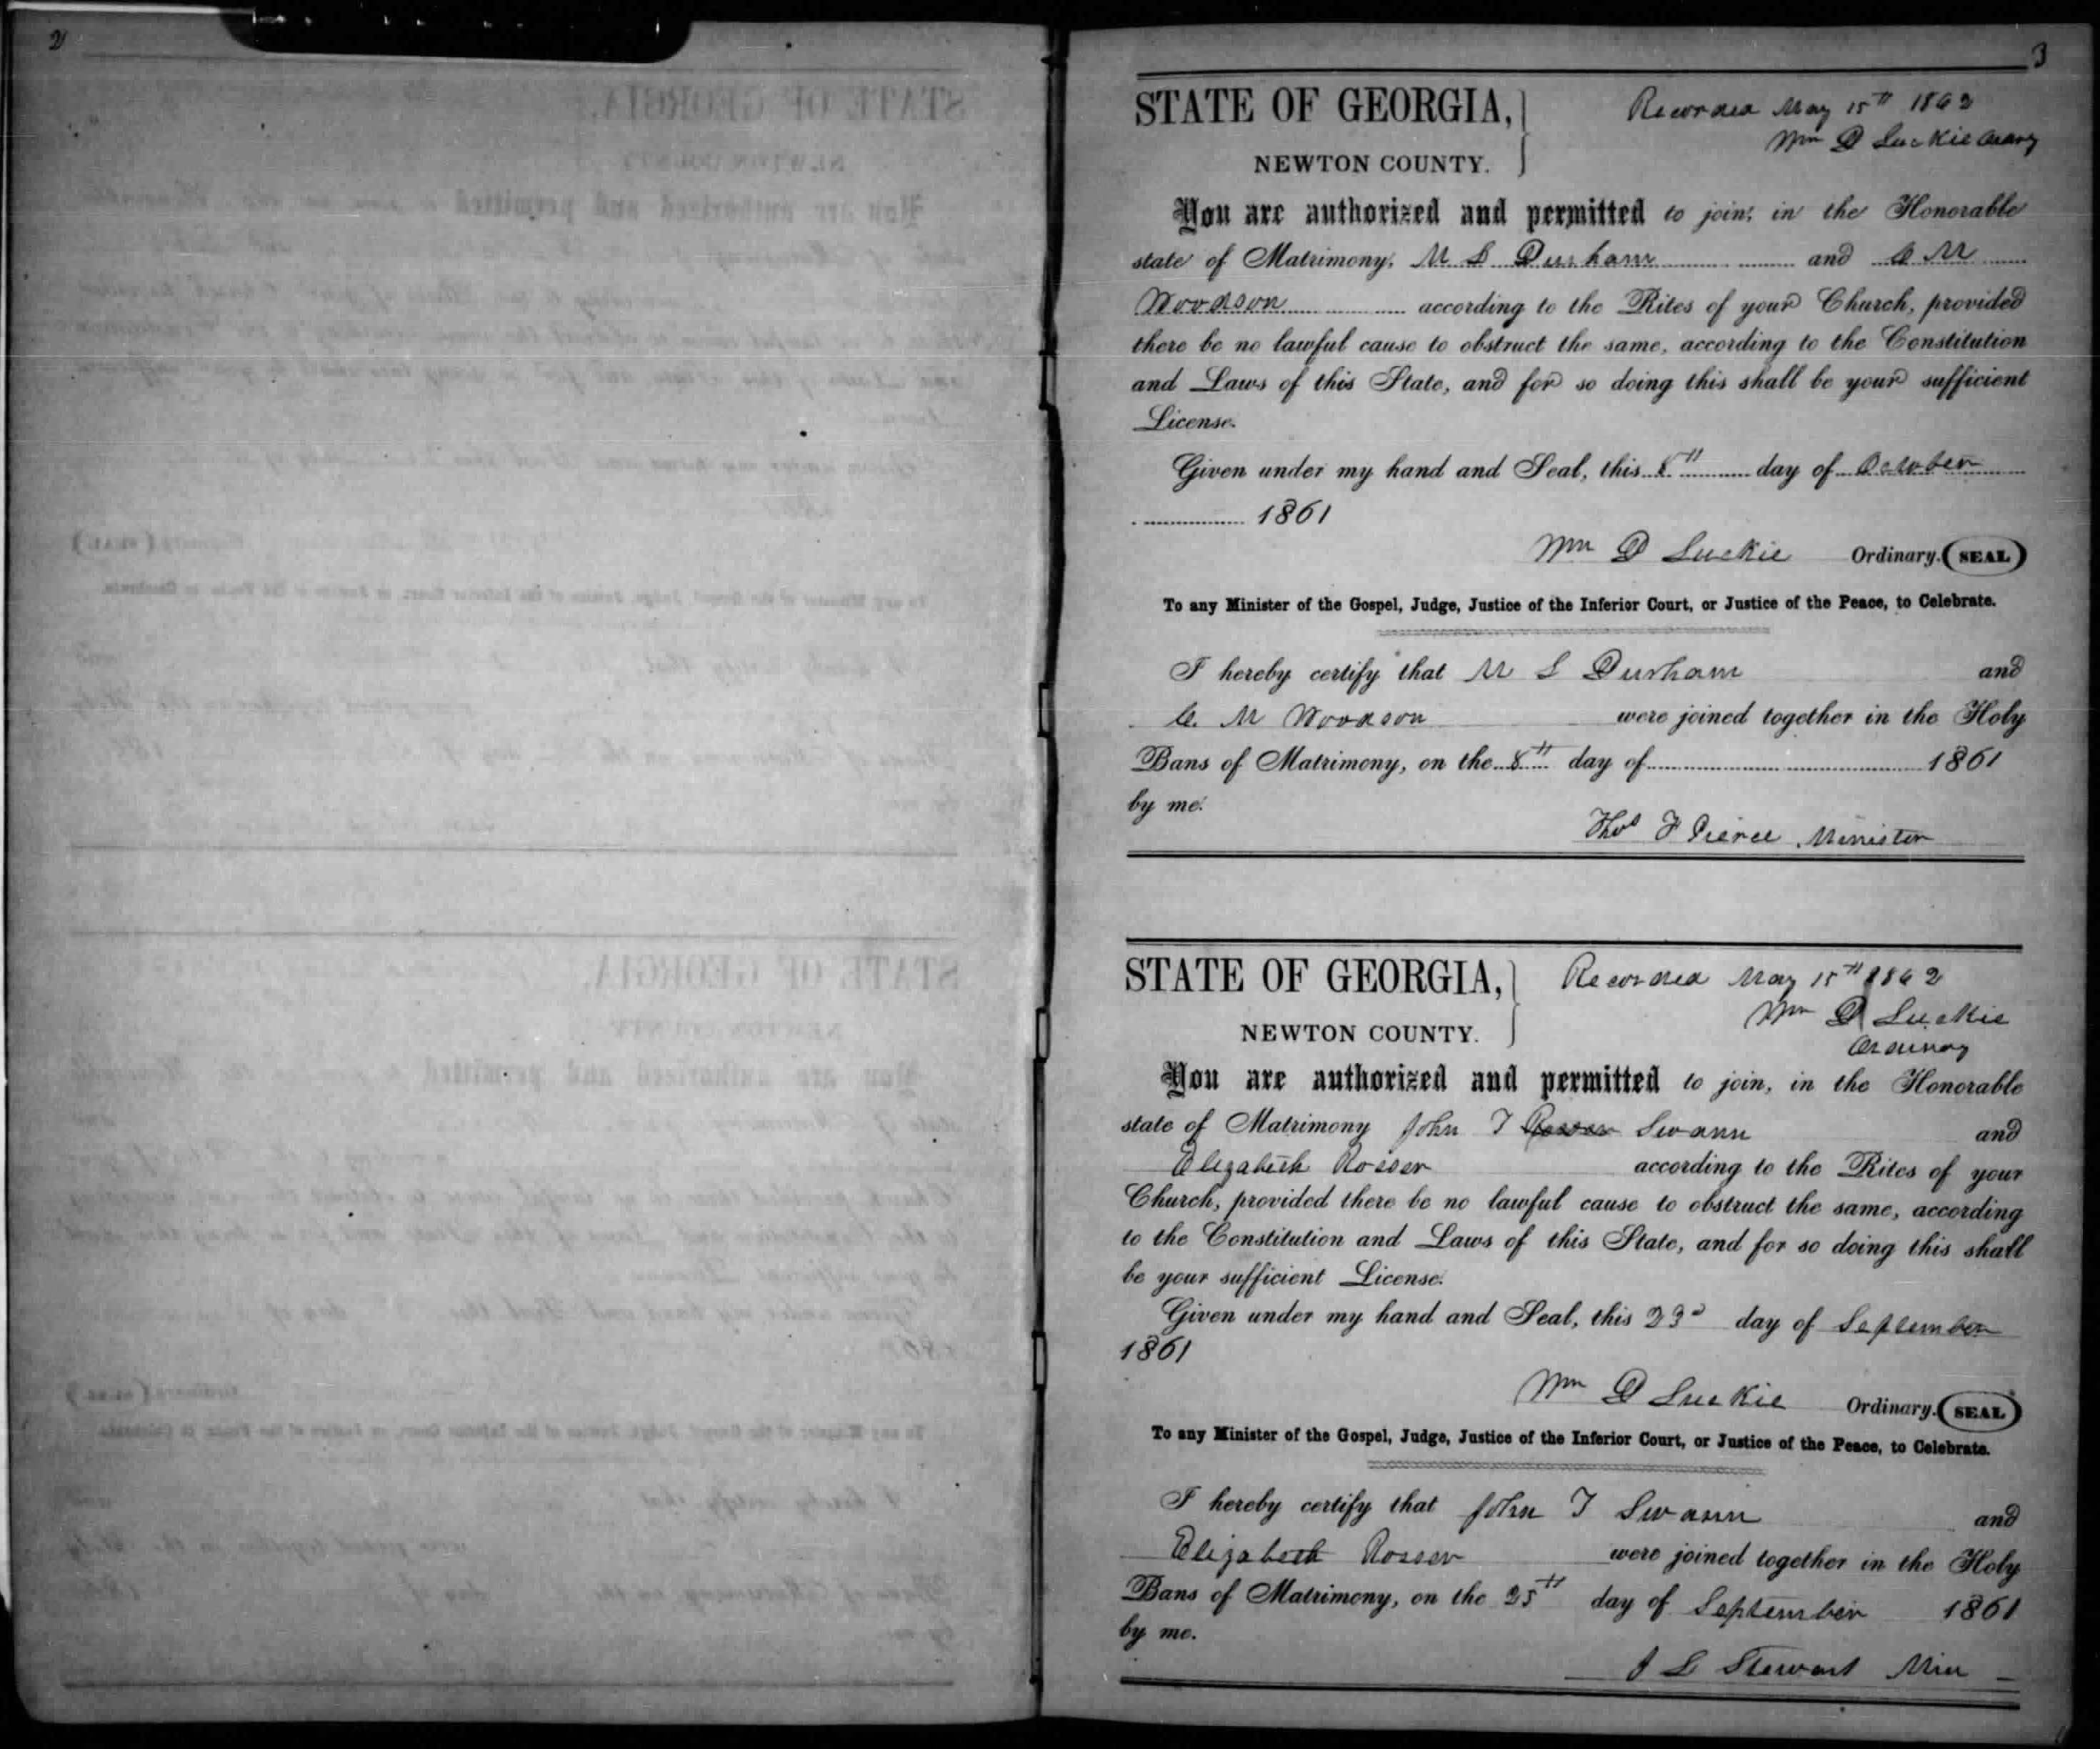 2
3
STATE OF GEORGIA,
NEWTON COUNTY.
Recorded May 15th 1862
Wm D Luckie Ordry
You are authorized and permitted to join, in the Honorable
state of Matrimony, M L Durham and C M
Woodson according to the Rites of your Church, provided
there be no lawful cause to obstruct the same, according to the Constitution
and Laws of this State, and for so doing this shall be your sufficient
License.
Given under my hand and Seal, this 8th day of October
1861
Wm D Luckie Ordinary. (SEAL)
To any Minister of the Gospel, Judge, Justice of the Inferior Court, or Justice of the Peace, to Celebrate.
I hereby certify that M L Durham and
C. M Woodson were joined together in the Holy
Bans of Matrimony, on the 8th day of 1861
by me.
Thos F Pierce, Minister
STATE OF GEORGIA,
NEWTON COUNTY.
Recorded May 15th 1862
Wm D Luckie
Ordinary
You are authorized and permitted to join, in the Honorable
state of Matrimony John T Swann and
Elizabeth Rosser according to the Rites of your
Church, provided there be no lawful cause to obstruct the same, according
to the Constitution and Laws of this State, and for so doing this shall
be your sufficient License.
Given under my hand and Seal, this 23d day of September
1861
Wm D Luckie Ordinary. (SEAL)
To any Minister of the Gospel, Judge, Justice of the Inferior Court, or Justice of the Peace, to Celebrate.
I hereby certify that John T Swann and
Elizabeth Rosser were joined together in the Holy
Bans of Matrimony, on the 25th day of September 1861
by me.
J L Stewart Min